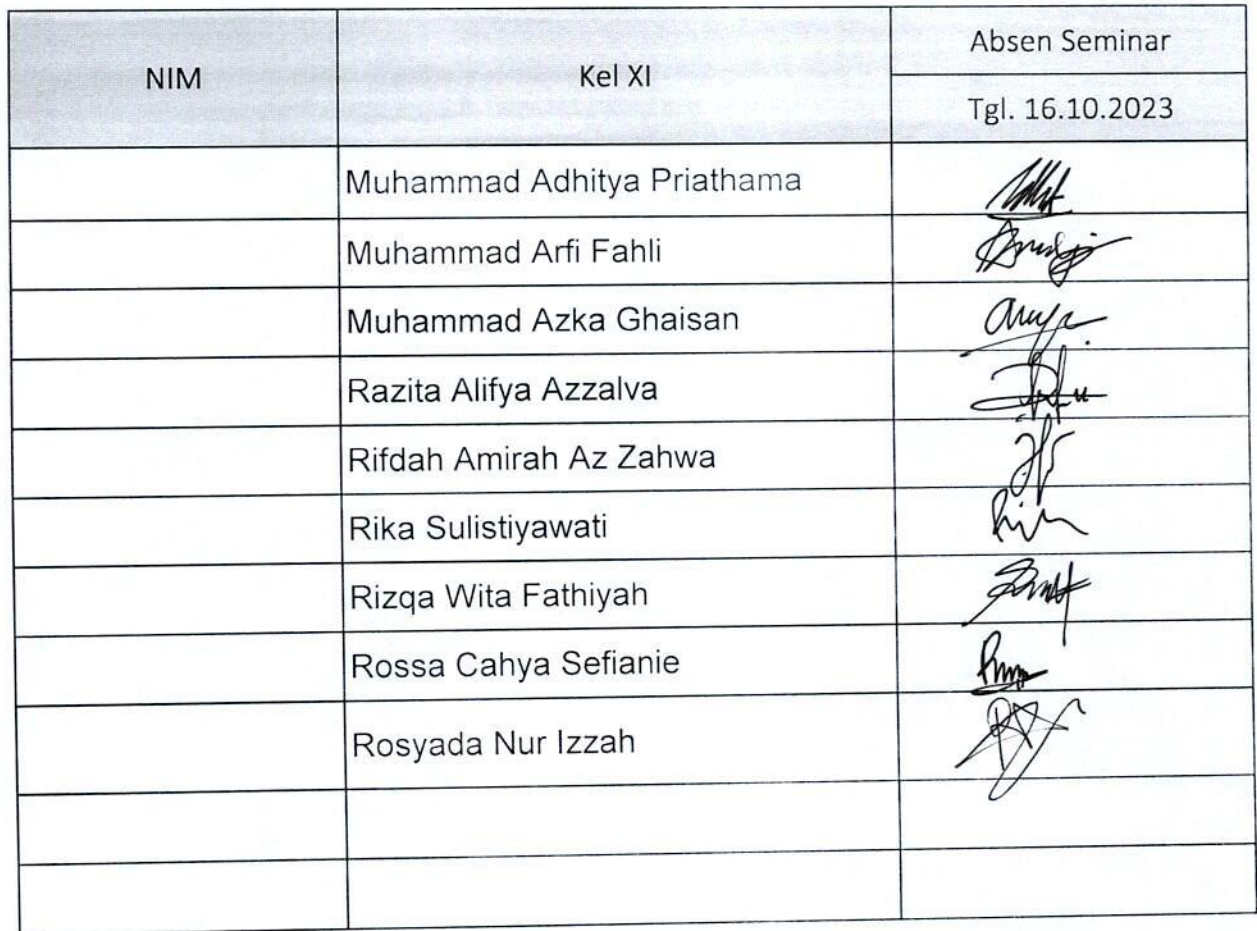 NIM
Kel XI
Absen Seminar
Tgl. 16.10.2023
Muhammad Adhitya Priathama
Muhammad Arfi Fahli
Muhammad Azka Ghaisan
Razita Alifya Azzalva
Rifdah Amirah Az Zahwa
Rika Sulistiyawati
Rizqa Wita Fathiyah
Rossa Cahya Sefianie
Rosyada Nur Izzah